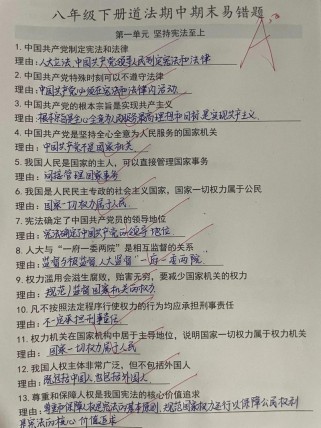 八年级下册道法期中期末易错题
第一单元 坚持宪法至上
1. 中国共产党制定宪法和法律
理由:人大立法,中国共产党领导人民制定宪法和法律
2. 中国共产党特殊时刻可以不遵守法律
理由:中国共产党必须在宪法和法律内活动
3. 中国共产党的根本宗旨是实现共产主义
理由:根本宗旨是全心全意为人民服务最高理想和目标是实现共产主义.
4. 中国共产党是坚持全心全意为人民服务的国家机关
理由:中国共产党不是国家机关.
5. 我国人民是国家的主人,可以直接管理国家事务
理由:间接管理国家事务
6. 我国是人民民主专政的社会主义国家,国家一切权力属于公民
理由:国家一切权力属于人民
7. 宪法确定了中国共产党员的领导地位
理由:宪法确定了中国共产党的领导地位
8. 人大与“一府一委两院”是相互监督的关系
理由:监督不被监督 人大监督“一府一委两院
9. 权力滥用会滋生腐败,贻害无穷,要减少国家机关的权力
理由:规范/监督国家机关的权力
10. 凡不按照法定程序行使权力的行为均应承担刑事责任
理由:不一定承担刑事责任
11. 权力机关在国家机构中居于主导地位,说明国家一切权力属于权力机关
国家一切权力属于人民
12. 我国人权主体非常广泛,但不包括外国人
理由:既包括中国人,也包括外国人
13. 尊重和保障人权是宪法的核心价值追求
理由:尊重和保障人权是宪法的基本原则,规范国家权力运行以保障公民权利
是宪法的核心价值追求